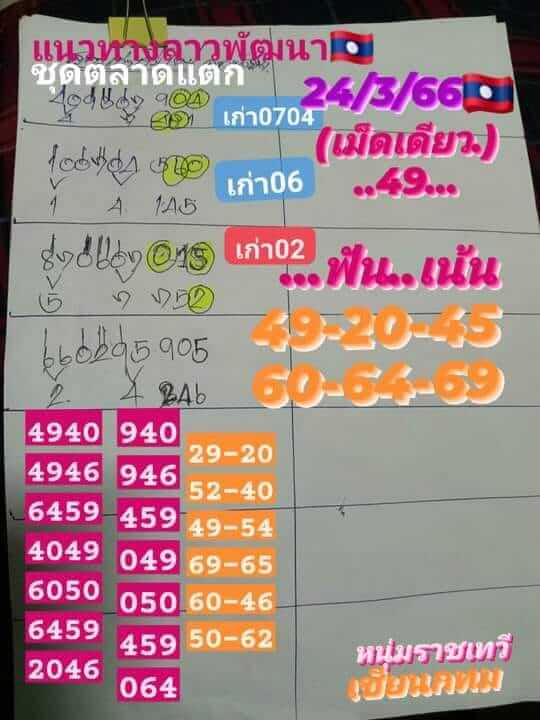 แนวทางลาวพัฒนา
ชุดตลาดแตก
24/3/66
(เม็ดเดียว.)
..49...
เก่า0704
เก่า06
1 4 145
เก่า02
...ฟัน..เน้น
49-20-45
60-64-69
5 7 752
660295 905
2 4 346
4940 940
4946 946
6459 459
4049 049
6050 050
6459 459
2046 064
29-20
52-40
49-54
69-65
60-46
50-62
หนุ่มราชเทวี
เซียนกทม